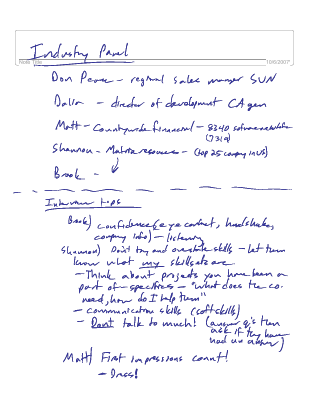 Industry Panel
Note Title
10/8/2007
Don - regional sales manager SUN
Dalia - director of development CA gen
Matt - Countrywide financial - 8340
(7319)
Shannon - Matrix resources - (top 25 company in US)
Brook -
Interview tips
Brook) confidence (eye contact, handshake,
company info) - listening
Shannon) Don't try and overstate skills - let them
know what my skillsets are
- Think about projects you have been a
part of - specifics - "what does the co.
need, how do I help them"
- communication skills (soft skills)
- Don't talk to much! (answer q's then
ask if they have
had an answer)
Matt) First impressions count!
- Dress!